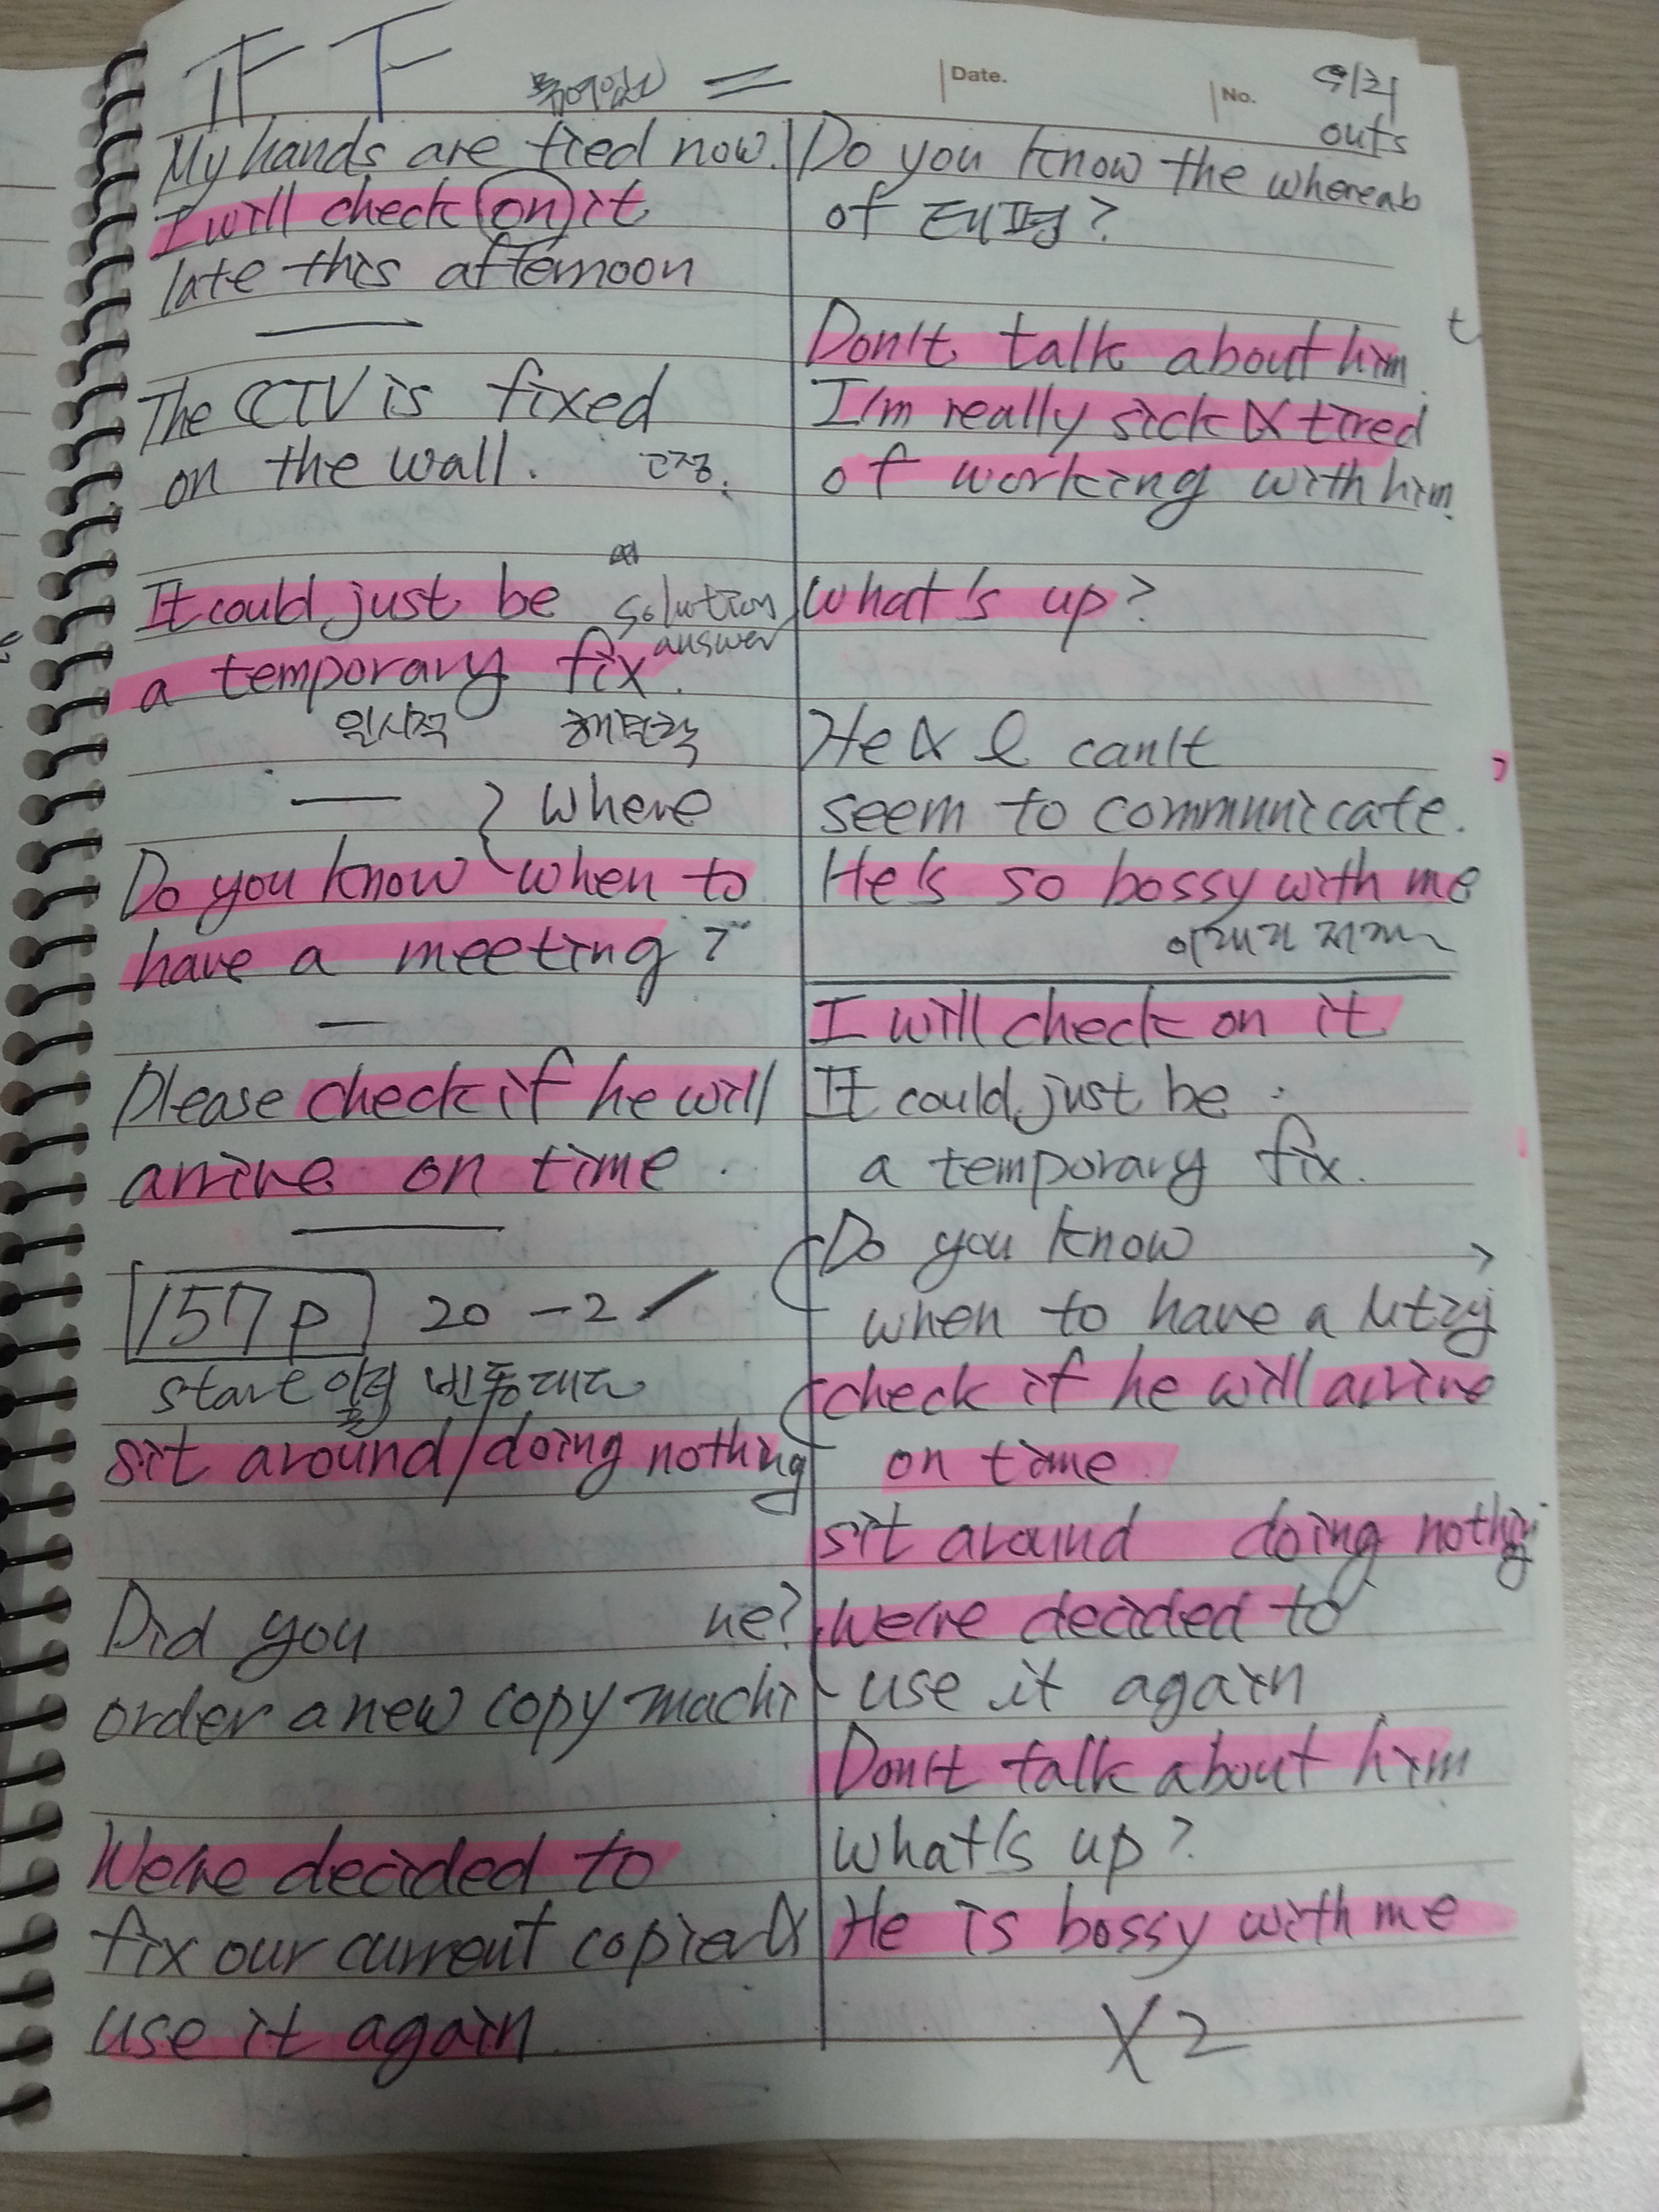 묶여있다
My hands are tied now.
I will check on it
late this afternoon
The CCTV is fixed
on the wall. 고정.
It could just be solution
answer
a temporary fix.
일시적 해결책
where
Do you know when to
have a meeting?
Please check if he will
arrive on time.
157p 20-2
start 일렬 빈둥대고
sit around/doing nothing
Did you ne?
order a new copy machi
We're decided to
fix our current copier &
use it again.
Date.
No.
위치
outs
Do you know the whereab
of 태평?
t
Don't talk about him
I'm really sick & tired
of working with him.
What's up?
He & I can't
seem to communicate.
He's so bossy with me
I will check on it
It could just be
a temporary fix.
Do you know
when to have a
check if he will arrive
on time.
sit around doing nothing
We're decided to
use it again
Don't talk about him
What's up?
He is bossy with me
X2